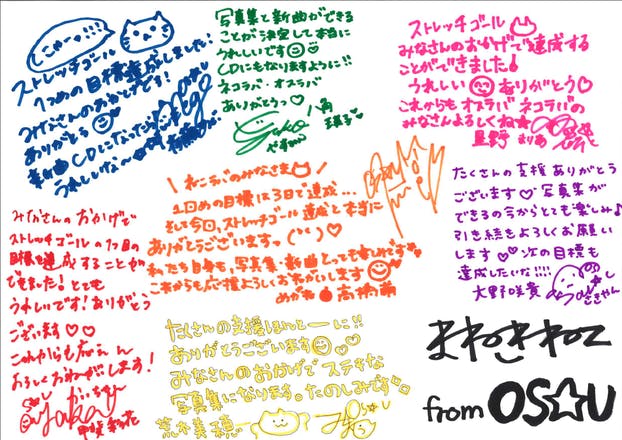 しこやーッ!!!
ストレッチゴール
1つめの目標達成しました!
みなさんのおかげです!
ありがとう
新曲CDになったら
うれしいな〜
写真集と新曲ができる
ことが決定して本当に
うれしいです
CDにもなりますように!!
ネコラバ・オスラバ
ありがとうっ♡
八角
ストレッチゴール
みなさんのおかげで達成する
ことができました!
うれしい ありがとう♡
これからもオスラバ ネコラバの
みなさんよろしくね★
星野
\ ねこラバのみなさま
1回めの目標は3日で達成...
そして今回、ストレッチゴール達成と本当に
ありがとうございますっ
私たち自身も、写真集・新曲とっても楽しみです
これからも応援よろしくおねがいします
めがね 高橋萌
たくさんの支援ありがとう
ございます♡写真集が
できるの今からとても楽しみ♪
引き続きよろしくお願い
します♡♡次の目標も
達成したいな!!!!
大野咲貴
さきやん
みなさんのおかげで
ストレッチゴールの1つ目の
目標を達成することが
できました!とても
うれしいです!ありがとう
ございます♡♡
これからも応えん
よろしくおねがします!
たくさんの支援ほんとーに!!
ありがとうございます
みなさんのおかげでステキな
写真集になります。たのしみです
荒木美穂
まねきねこ
from OS☆U